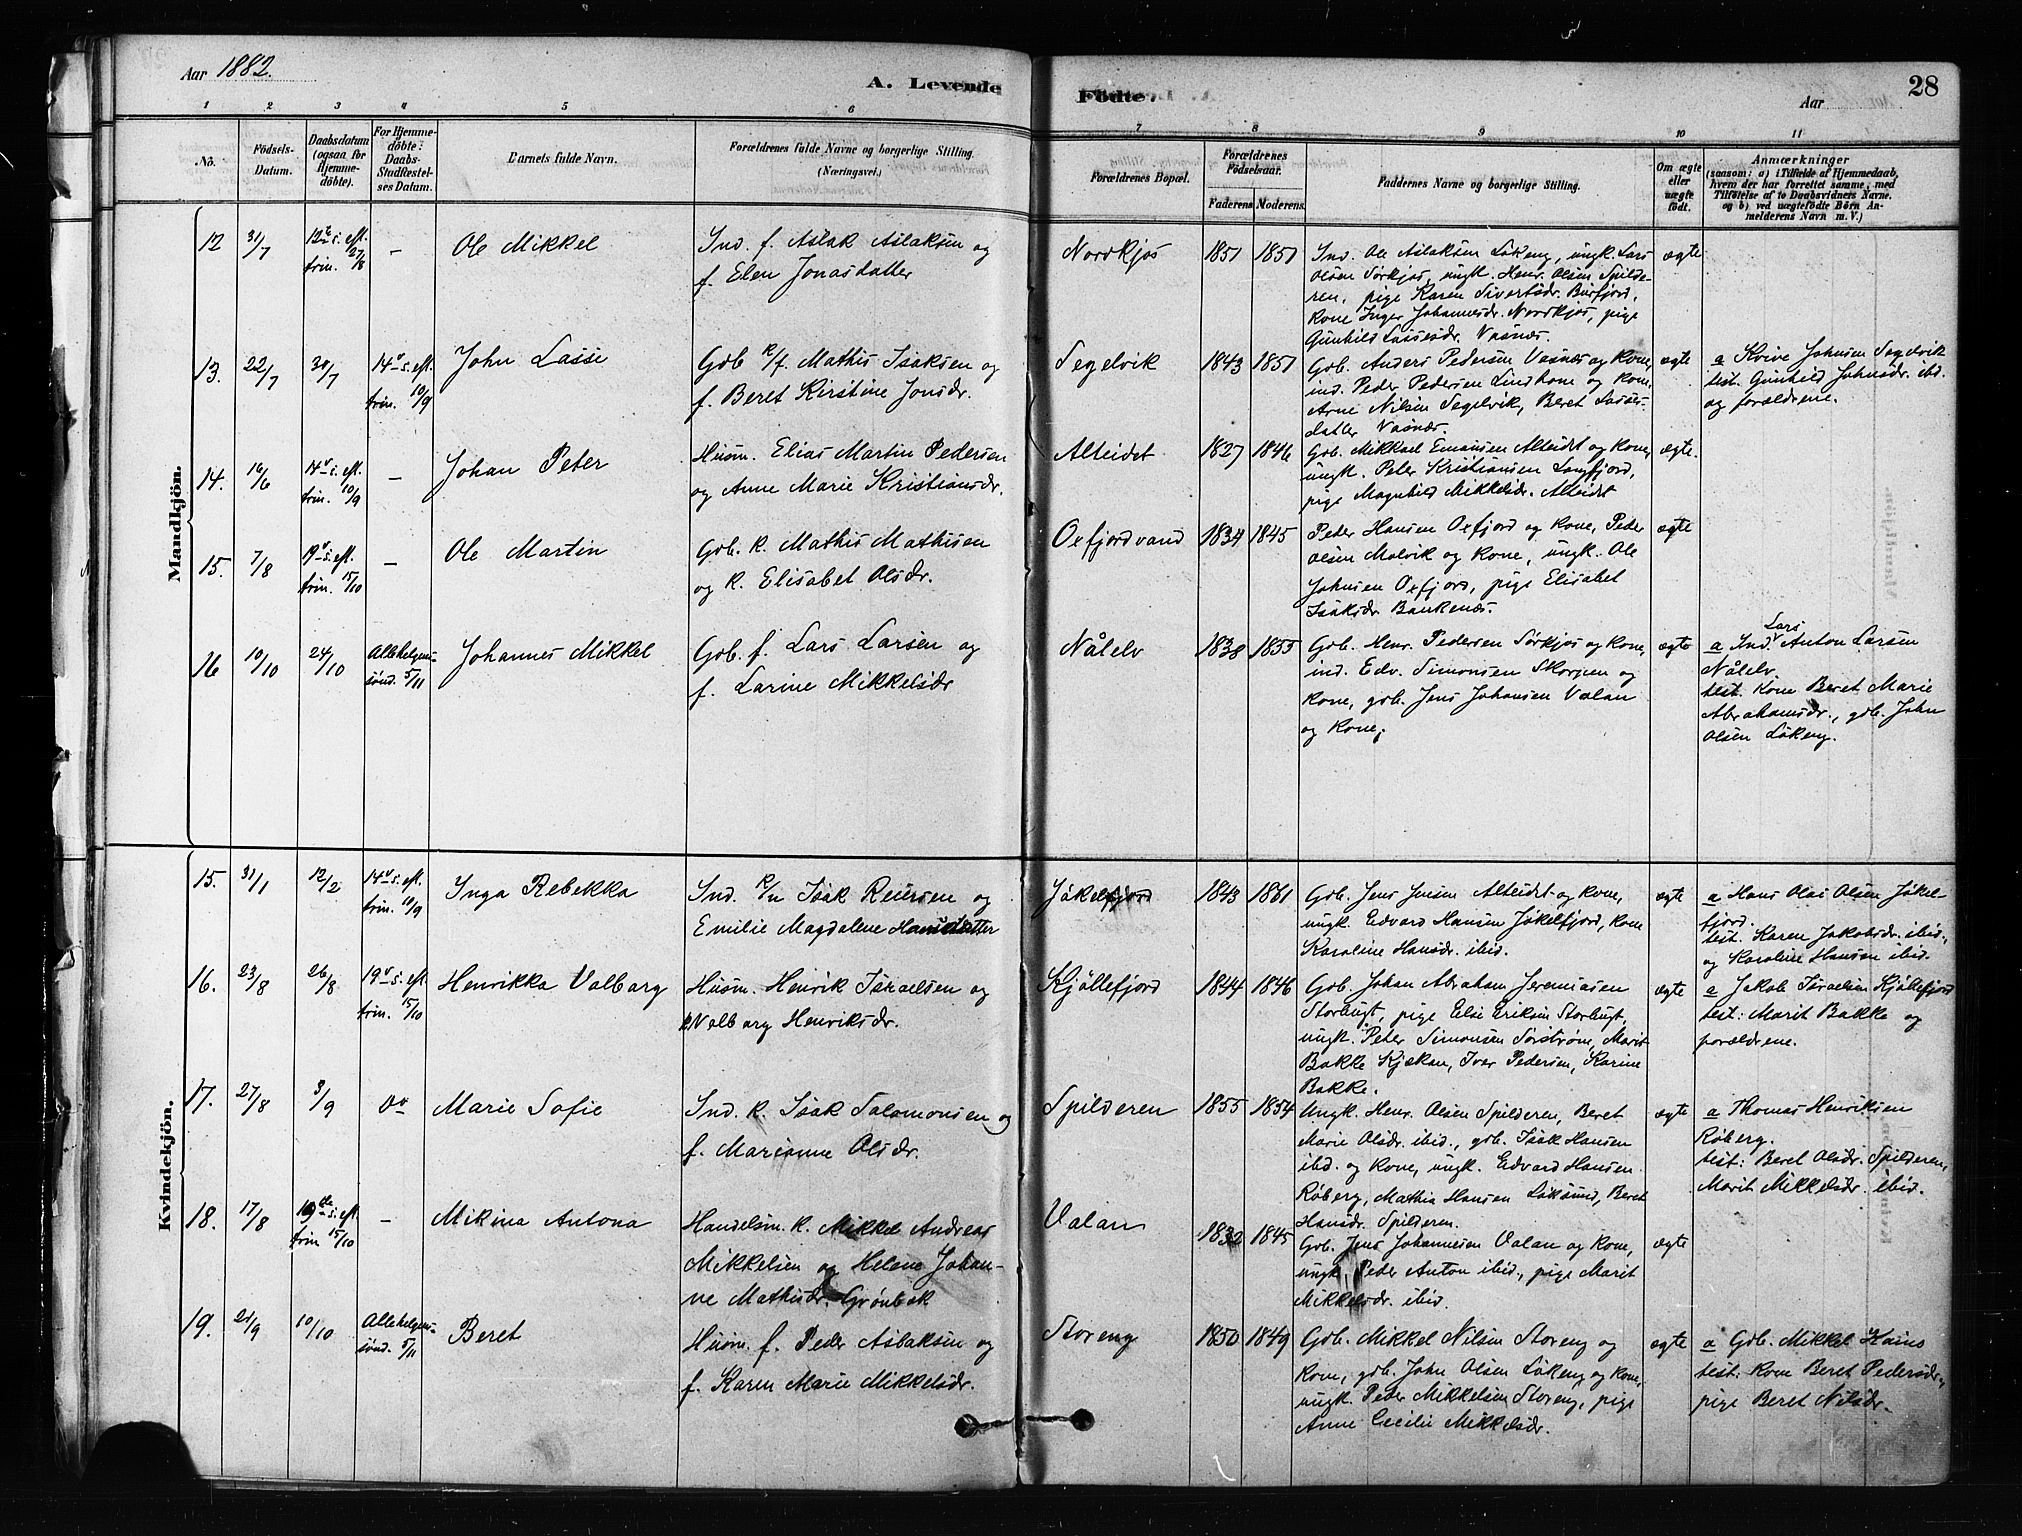 Aar 1882.
A. Levende
Födte.
Aar
28
1 2 3 4 5 6 7 8 9 10 11
No.
Födsels-
Datum.
Daabsdatum
(ogsaa for
Hjemme-
döbte).
For Hjemme-
döbte:
Daabs-
Stadfæstel-
ses Datum.
Barnets fulde Navn.
Forældrenes fulde Navne og borgerlige Stilling.
(Næringsvei.)
Forældrenes Bopæl.
Forældrenes
Födselsaar.
Faderens Moderens.
Faddernes Navne og borgerlige Stilling.
Om ægte
eller
uægte
födt.
Anmærkninger
(saasom: a) i Tilfælde af Hjemmedaab,
hvem der har forrettet samme, med
Tilföielse af to Daabsvidners Navne.
og b) ved uægtefödte Börn An-
melderens Navn m. V.)
Mandkjön.
12 31/7 12te s. eft. trin. 27/8 – Ole Mikkel
Ind. f. Aslak Aslaksen og
f. Elen Jonasdatter
Nordkjos 1851 1851
Ind. Ole Aslaksen Løkeng, ungk. Lars
Olsen Sørkjos, ungk. Henr. Olsen Spilde-
ren, pige Karen Sivertsdr. Burfjord,
Kone Inger Johannesdr. Nordkjos, pige
Gunhild Lassesdr. Vasnæs.
ægte
13. 22/7 30/7 14de s. eft. trin. 10/9 John Lasse
Gdb K/f. Mathis Isaksen og
f. Beret Kirstine Jonsdr.
Segelvik 1843 1851
Gdb. Anders Pedersen Vasnæs og Kone,
ind. Peder Pedersen Lindhone og Kone,
Arne Nilsen Segelvik, Beret Lasses-
datter Vasnæs.
ægte
a Johnsen Segelvik
test. Gunhild Johnsdr. ibd.
og forældrene.
14. 16/6 14de s. eft. trin. 10/9 – Johan Peter
Husm. Elias Martin Pedersen
og Anne Marie Kristiansdr.
Alteidet 1827 1846
Gdb. Mikkael Emausen Alteidet og Kone,
ungk. Peter Kristiansen Langfjord,
pige Magnhild Mikkelsdr. Alteidet
ægte.
15. 7/8 19de s. eft. trin. 15/10 – Ole Martin
Gdb. K. Mathis Mathisen
og K. Elisabet Olsdr.
Oxfjordvand 1834 1845
Peder Hansen Oxfjord og Kone, Peder
Olsen Molvik og Kone, ungk. Ole
Johnsen Oxfjord, pige Elisabet
Isaksdr Bankenæs.
ægte
16 10/10 24/10 Allehelgens-sønd. 5/11 Johannes Mikkel
Gdb. f. Lars Larsen og
f. Larine Mikkelsdr
Nålelv 1838 1855
Gdb. Henr. Pedersen Sørkjos og Kone,
ind. Edv. Simonsen Skorpen og
Kone, gdb. Jens Johansen Valan
og Kone.
ægte
a Ind. Lars Anton Larsen
Nålelv.
test. Kone Beret Marie
Abrahamsdr., gdb. John
Olsen Løkeng.
Kvindekjön.
15. 31/1 12/2 14de s. eft. trin. 10/9 Inga Rebekka
Ind. K/n Isak Reiersen og
Emilie Magdalene Hansdatter
Jøkelfjord 1843 1861
Gdb. Jens Jensen Alteidet og Kone,
ungk. Edvard Hansen Jøkelfjord, Kone
Karoline Hansdr. ibid.
ægte
a Hans Olai Olsen Jøkel-
fjord.
test. Karen Jakobsdr. ibid.,
og Karoline Hansen ibid.
16. 23/8 26/8 19de s. eft. trin. 15/10 Henrikka Valborg
Husm. Henrik Israelsen og
Valborg Henriksdr.
Kjøllefjord 1844 1846
Gdb. Johan Abraham Jeremiasen
Storbugt, pige Else Eriksen Storbugt,
ungk. Peter Simonsen Sørstrøm, Marit
Bakke Kjækan, Iver Pedersen, Karine
Bakke.
ægte
a Jakob Israelsen Kjøllefjord
test: Marit Bakke og
forældrene.
17. 27/8 3/9 do Marie Sofie
Ind. K. Isak Salomonsen og
f. Marianne Olsdr.
Spilderen 1855 1854
Ungk. Henr. Olsen Spilderen, Beret
Marie Olsdr. ibid., gdb. Isak Hansen
ibd. og Kone, ungk. Edvard Hansen
Røberg, Mathis Hansen Løksund, Beret
Hansdr. Spilderen.
ægte
a Thomas Henriksen
Røberg.
test: Beret Olsdr. Spilderen,
Marit Mikkelsdr. ibid.
18. 17/8 19de s. eft. trin 15/10 – Mikina Antona
Handelsm. K. Mikkel Andreas
Mikkelsen og Helene Johan-
ne Mathisdr. Grønbek
Valan 1832 1845
Gdb. Jens Johannesen Valan og Kone,
ungk. Peder Anton ibid., pige Marit
Mikkelsdr. ibid.
ægte
19. 21/9 10/10 Allehelgens-sønd. 5/11 Beret
Husm. f. Peder Aslaksen og
f. Karen Marie Mikkelsdr.
Storeng 1850 1849
Gdb. Mikkel Nilsen Storeng og
Kone, gdb. John Olsen Løkeng og Kone,
ungk. Peder Mikkelsen Storeng, pige
Anne Cecilie Mikkelsdr.
ægte
a Gdb. Mikkel
test: Kone Beret Pedersdr.,
pige Beret Nilsdr.